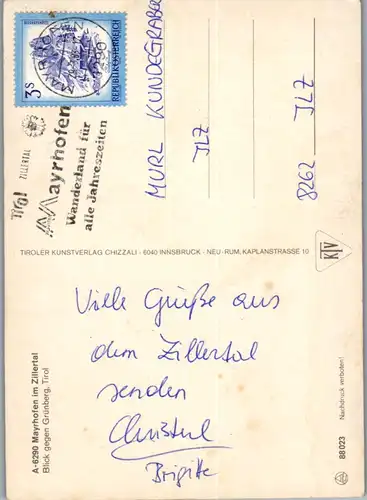 3S
REPUBLIK ÖSTERREICH
6290
Tirol
ZILLERTAL
Mayrhofen
Wanderland für
alle Jahreszeiten
MURL KUNDEGRABER
ILZ
8262 ILZ
TIROLER KUNSTVERLAG CHIZZALI · 6040 INNSBRUCK - NEU-RUM, KAPLANSTRASSE 10
KTV
Viele Grüße aus
dem Zillertal
senden
Christl
Brigitte
A-6290 Mayrhofen im Zillertal
Blick gegen Grünberg, Tirol
88 023
Nachdruck verboten!